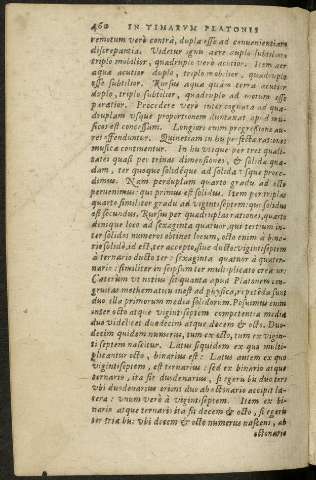 460 IN TIMAEVM PLATONIS
remotum verò contrà, dupla esse ad conuenientiam
discrepantia. Videtur ignis aëre duplo subtilior,
triplo mobilior, quadruplo verò acutior. Item aër
aqua acutior duplo, triplo mobilior, quadruplo
esse subtilior. Rursus aqua quàm terra acutior
duplo, triplo subtilior, quadruplo ad motum esse
paratior. Procedere verò inter cognata ad qua-
druplam vsque proportionem duntaxat apud mu-
sicos est concessum. Longiore enim progressione au-
res offenduntur. Quinetiam in his perfectæ rationes
musicæ continentur. In his vsque per tres quali-
tates quasi per trinas dimensiones, & solida qua-
dam, ter quoque solidéque ad solida vsque proce-
dimus. Nam per duplum quarto gradu ad octo
peruenimus: qui primus est solidus. Item per triplas
quarto similiter gradu ad vigintiseptem: qui solidus
est secundus. Rursus per quadruplas rationes, quarto
denique loco ad sexaginta quatuor, qui tertium in-
ter solidos numeros obtinet locum, octo enim à bina-
rio solidè, id est, ter accepto, siue ducto: vigintiseptem
à ternario ducto ter: sexaginta quatuor à quater-
nario: similiter in seipsum ter multiplicato creatur.
Cæterùm vt iustitia sit quanta apud Platonem con-
gruitas mathematicis inest ad physica, repetēda sunt
duo illa primorum media solidorum. Posuimus enim
inter octo atque vigintiseptem competentia media
duo videlicet duodecim atque decem & octo. Duo-
decim quidem numerus, tum ex octo, tum ex viginti-
septem nascitur. Latus siquidem ex quo multi-
plicantur octo, binarius est: Latus autem ex quo
vigintiseptem, est ternarius: sed ex binario atque
ternario, ita fit duodenarius, si egeris bis duo ter:
vbi duodenarius oriens duo ab octonario accipit la-
tera: vnum verò à vigintiseptem. Item ex bi-
nario atque ternario ita fit decem & octo, si egeris
ter tria bis: vbi decem & octo numerus nascens, ab
octonario